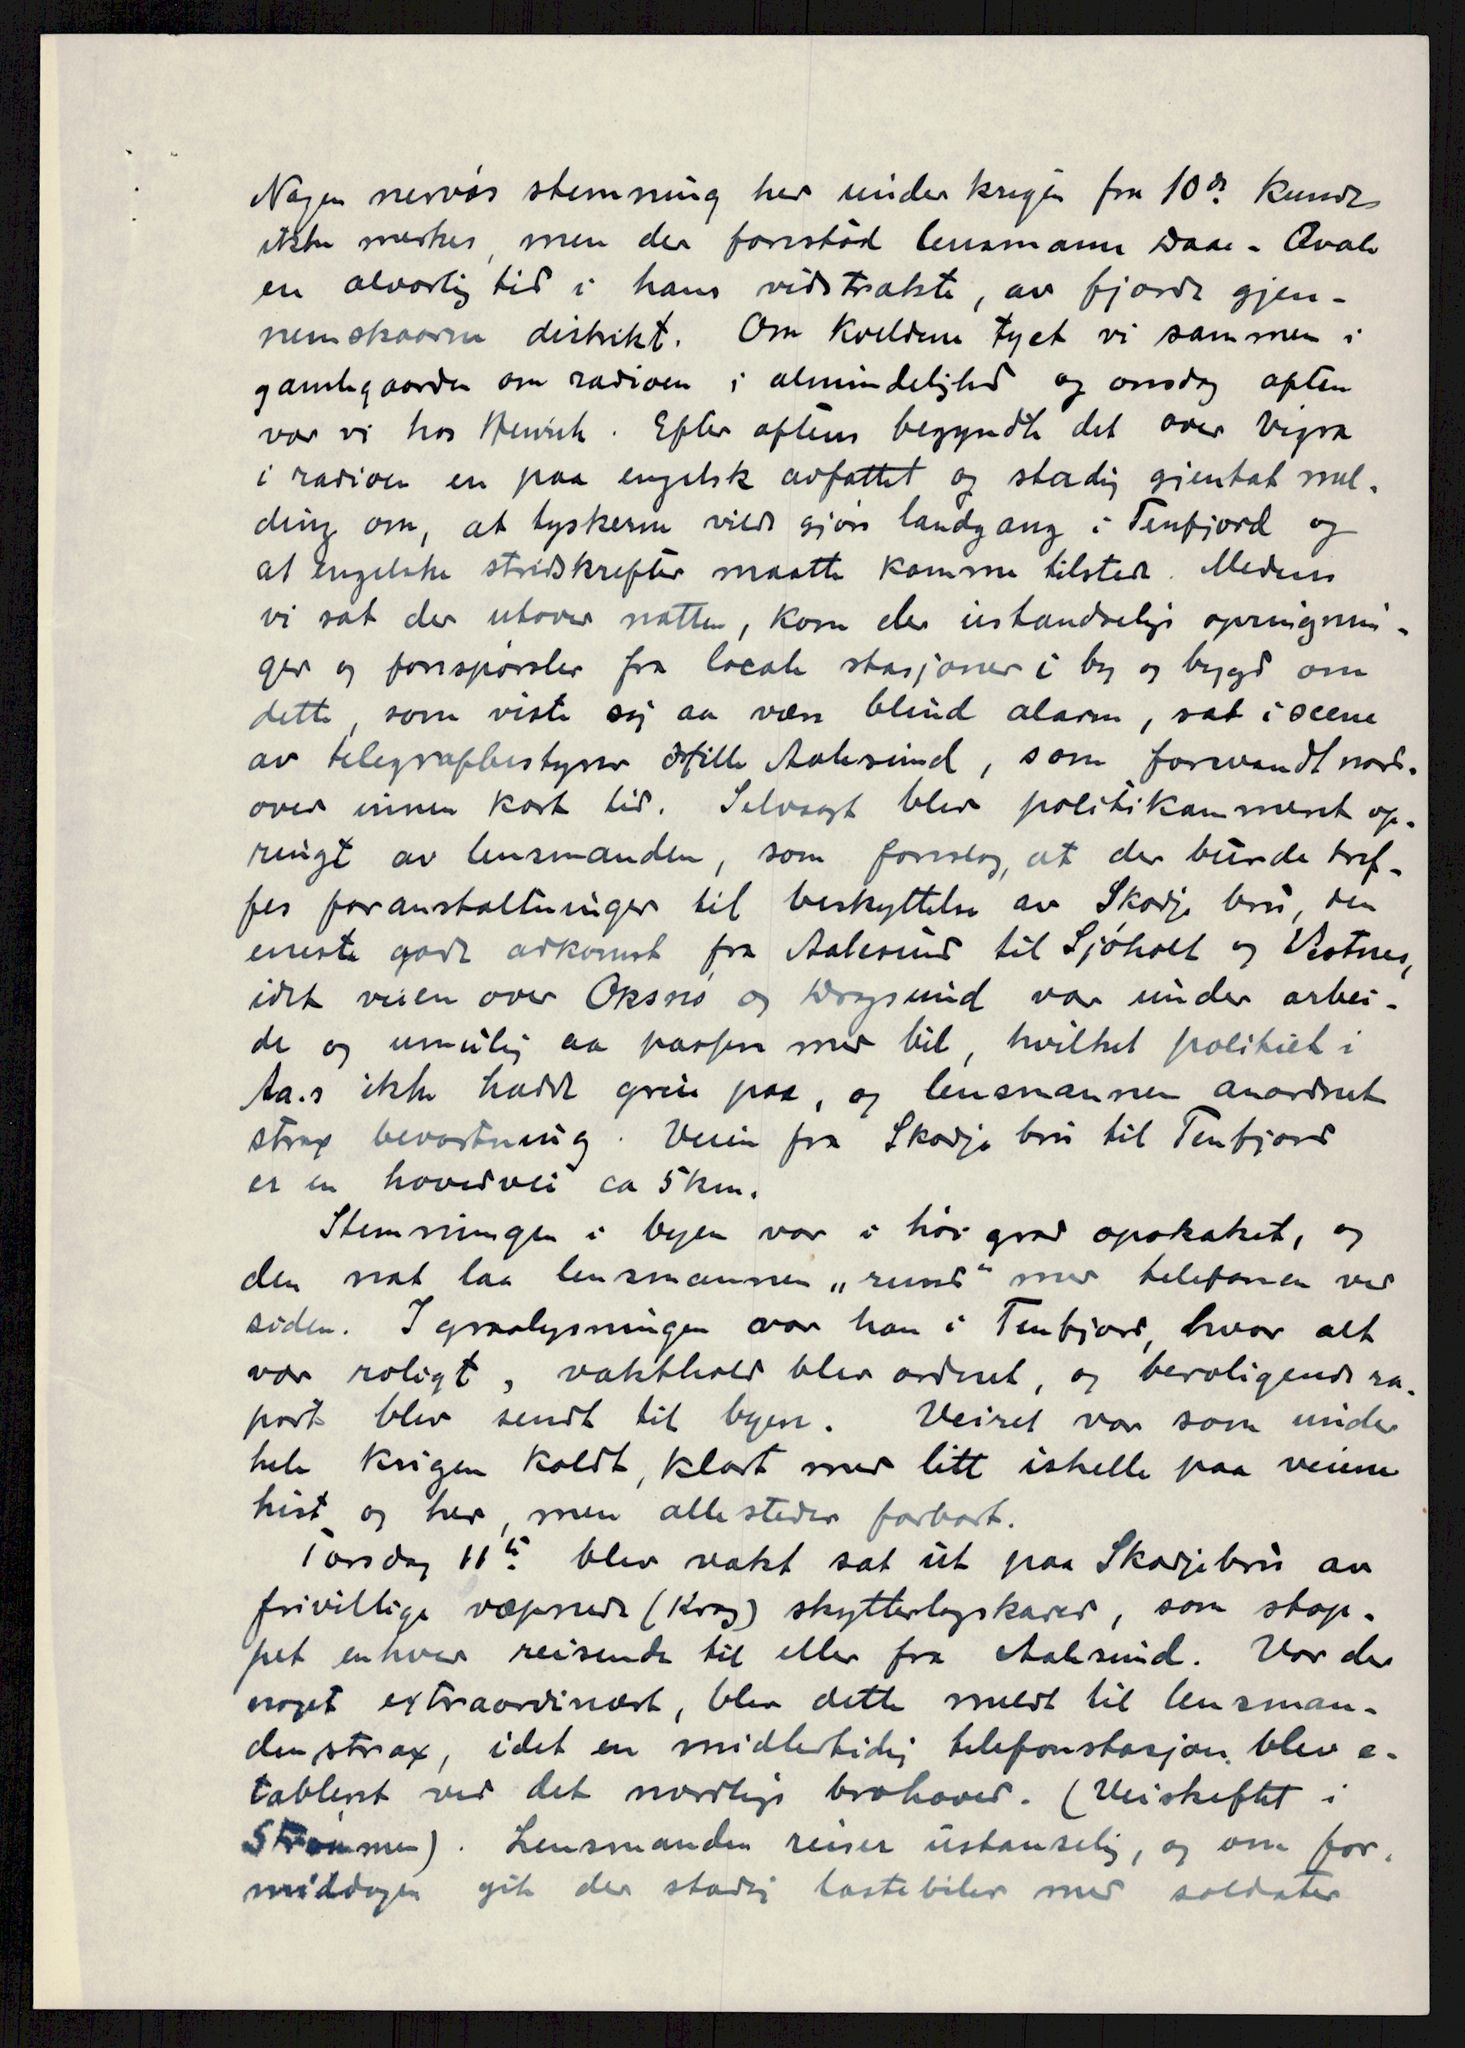 Nogen nervøs stemning her under krigen fra 10de kunde
ikke merkes, men der forestod lensmann Daae-Qvale
en alvorlig tid i hans vidstrakte, av fjorde gjen-
nemskaarne distrikt. Om kveldene tyet vi sammen i
gamlegaarden om radioen i almindelighed og onsdag aften
var vi hos Henrik. Efter aftens begyndte det over Vigra
i radioen en paa engelsk avfattet og stadig gjentat mel-
ding om, at tyskerne vilde gjøre landgang i Tenfjord og
at engelske stridskrefter maatte komme tilstede. Medens
vi sat der utover natten, kom der ustandselige opringnin-
ger og forespørsler fra locale stasjoner i by og bygd om
dette, som viste sig aa være blind alarm, sat i scene
av telegrafbestyrer Aalesund, som forsvandt nord-
over innen kort tid. Selvsagt blev politikammeret op-
ringt av lensmanden, som foreslog, at der burde tref-
fes foranstaltninger til beskyttelse av Skodje bru, den
eneste gode adkomst fra Aalesund til Sjøholt og Vestnes,
idet veien over Oksnø og Drygsund var under arbei-
de og umulig aa passere med bil, hvilket politiet i
Aa.s ikke hadde greie paa, og lensmannen anordnet
strax bevoktning. Veien fra Skodje bru til Tenfjord
er en hovedvei ca 5 km.
Stemningen i byen var i høi grad opskaket, og
den nat laa lensmannen „rund" med telefonen ved
siden. I graalysningen var han i Tenfjord, hvor alt
var roligt, vakthold blev ordnet, og beroligende ra-
port blev sendt til byen. Veiret var som under
hele krigen koldt, klart med litt ishelle paa veiene
hist og her, men allesteder farbart.
Torsdag 11te blev vakt sat ut paa Skodjebru av
frivillige væpnede (Krag) skytterlagskarer, som stop-
pet enhver reisende til eller fra Aalesund. Var der
noget extraordinært, blev dette meldt til lensman-
den strax, idet en midlertidig telefonstasjon blev e-
tablert ved det nordlige brohoved. (Veiskiftet i
Strømmen). Lensmanden reiser ustanselig, og om for-
middagen gik der stadig lastebiler med soldater